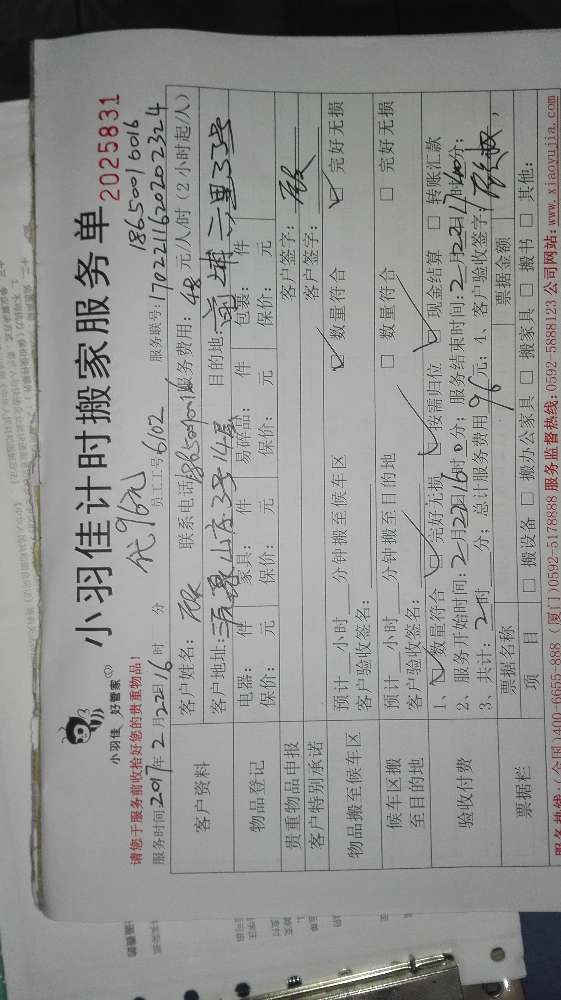 小羽佳计时搬家服务单
2025831
小羽佳 好管家
请您于服务前收拾好您的贵重物品!
代96元
18650016016
服务时间:2017年2月22日16时 分 员工工号6102 服务联号:17022211620202324
客户资料
客户姓名: 联系电话:18650016016 服务费用:48元/人/时(2小时起/人)
客户地址: 3号14层 目的地: 六里33号
物品登记
电器: 件 家具: 件 易碎品: 件 包裹: 件
保价: 元 保价: 元 保价: 元 保价: 元
贵重物品申报 客户签字:
客户特别承诺 客户签字:
物品搬至候车区
预计 小时 分钟搬至候车区 ☑ 数量符合 ☑ 完好无损
客户验收签名:
候车区搬至目的地
预计 小时 分钟搬至目的地 □ 数量符合 □ 完好无损
客户验收签名:
验收付费
1、☑数量符合 ☑完好无损 ☑按需归位 ☑现金结算 □ 转账汇款
2、服务开始时间:2月22日16时0分;服务结束时间:2月22日 时 分;
3、共计:2时 分;总计服务费用 96元;4、客户验收签字:
票据栏
票据名称 票据金额
项 目 □ 搬设备 □ 搬办公家具 □ 搬家具 □ 搬书 □ 其他:
服务热线:(全国)400-6655-888 (厦门)0592-5178888 服务监督热线:0592-5888123 公司网站:www.xiaoyujia.com